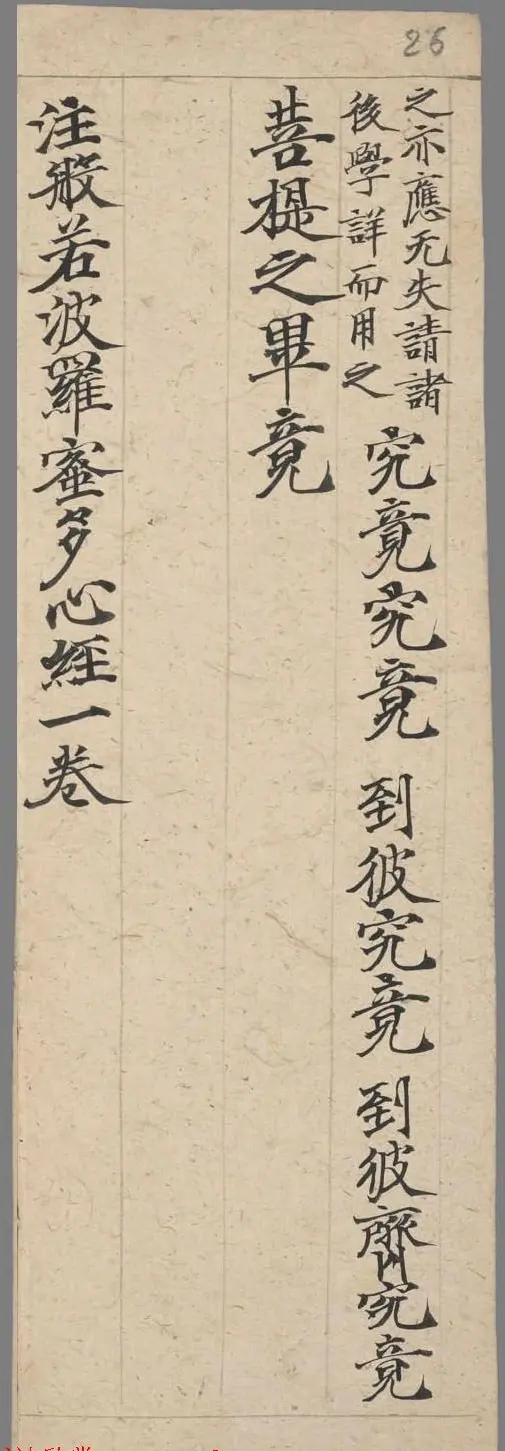 26
之亦應无失請諸
後學詳而用之
究竟究竟 到彼究竟 到彼齊究竟
菩提之畢竟
注般若波羅蜜多心經一卷